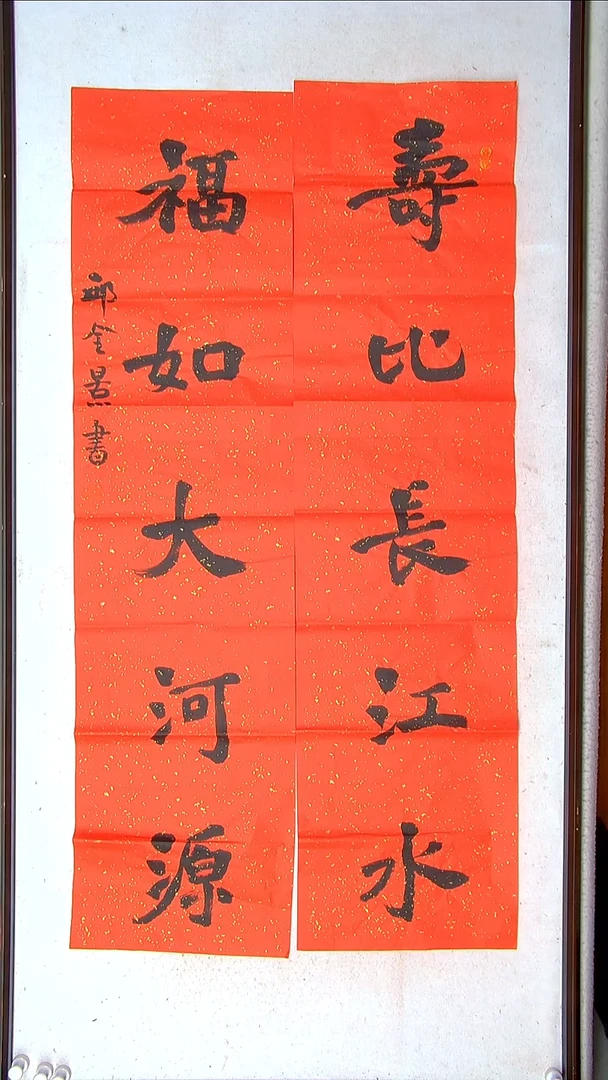 壽比長江水
福如大河源
邱全景書